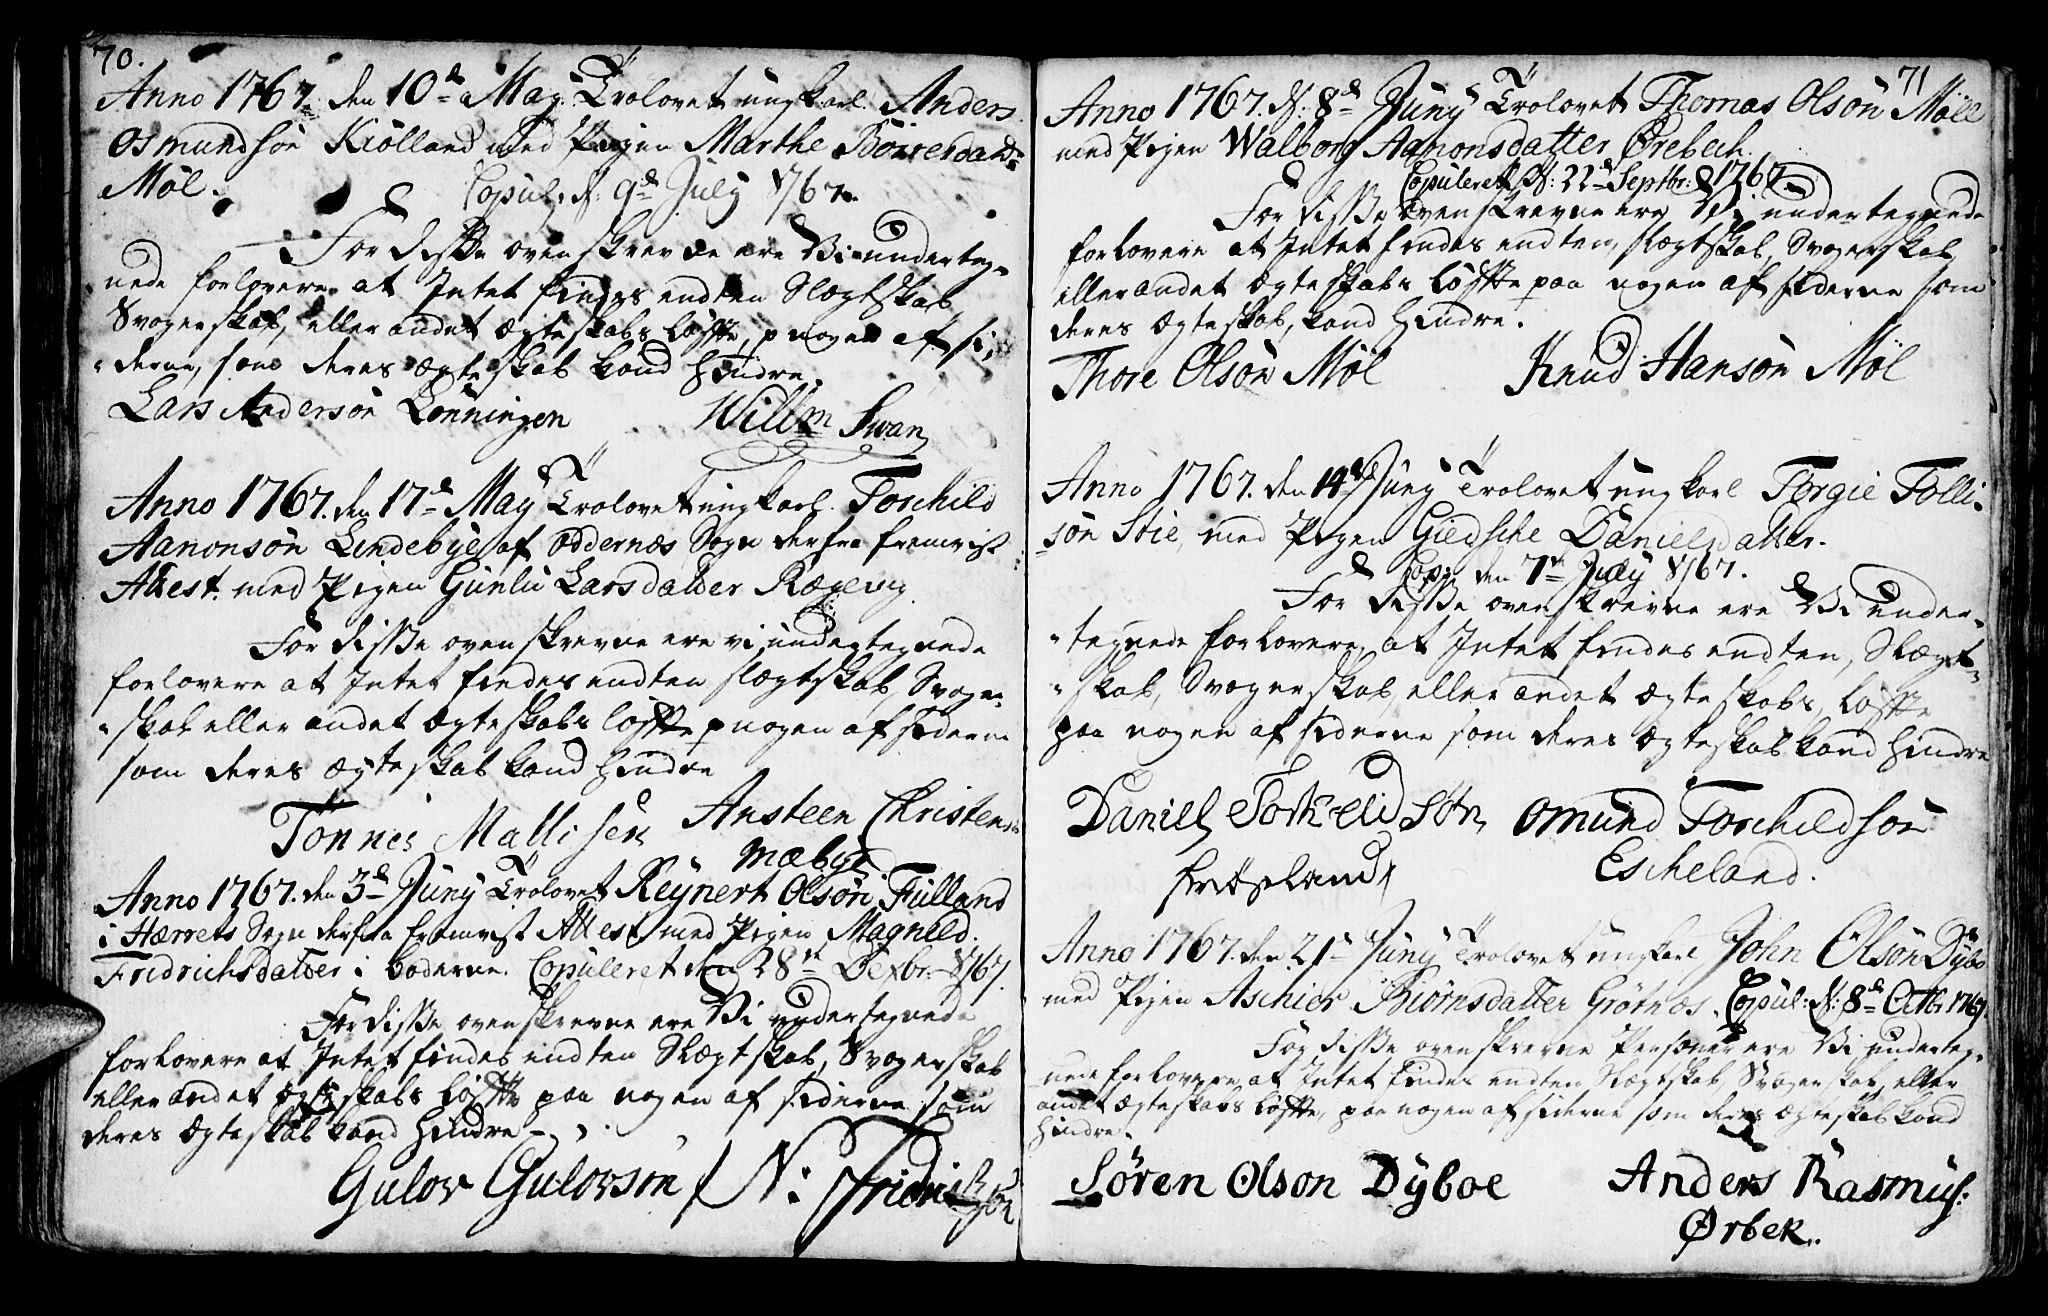 70.
Anno 1767. den 10de May. Trolovet ungkarl Anders
Osmundsøn Kiölland med Pigen Marthe Böirersdatt:
Møl.
Copul. d. 9de July 1767.
For disse ovenskrevne ere Vi underteg-
nede forlovere at Intet findes endten Slægtskab
Svogerskab, eller andet Ægteskabs løffte, p nogen af si-
derne, som deres Ægteskab kand hindre.
Lars Andersøn Lönningen Willm Swan
Anno 1767. den 17de May Trolovet ungkarl Torchild
Aanonsøn Lindebye af Oddernæs Sogn derfra fremvist
Attest. med Pigen Gunlu Larsdatter Rægevig
For disse ovenskrevne ere vi undertegnede
forlovere at Intet findes endten slægtskab, Svoger-
skab eller andet Ægteskabs løffte p nogen af siderne
som deres Ægteskab kand hindre
Tönnes Mallisen Ansteen Christens
Mæbye
Anno 1767. den 3de Juny Trolovet Reynert Olsøn Fulland
i Hærrets Sogn derfra fremvist Attest med Pigen Magneld
Fridrichsdatter i boderne. Copuleret den 28de Dexbr: 1767.
For disse ovenskrevne ere Vi undertegnede
forlovere at Intet findes endten Slægtskab, Svogerskab
eller andet Ægteskabs løffte paa nogen af siderne som
deres Ægteskab kand hindre
Gulov Gulovsøn N: Fridrichsøn
71
Anno 1767. d. 8de Juny Trolovet Thomas Olsøn Möll
med Pigen Walborg Aanonsdatter Ørebech.
Copuleret d: 22de Septbr: 1767
For disse ovenskrevne ere Vi undertegnede
forlovere at Intet findes endten, slægtskab, Svogerskab,
eller andet Ægteskabs løffte paa nogen af siderne som
deres Ægteskab, kand hindre.
Thore Olsøn Möl Knud Hansøn Möl
Anno 1767. den 14de Juny Trolovet ungkarl Torgie Tolli-
søn Stie, med Pigen Giedsche Danielsdatter.
Cop: den 7de July 1767.
For disse ovenskrevne ere Vi under-
tegnede forlovere, at Intet findes endten, Slægt-
skab, Svogerskab, eller andet Ægteskabs, løffte
paa nogen af siderne som deres Ægteskab kand hindre
Daniel Torkelidsøn Omund Torchildsøn
Frøsland Escheland.
Anno 1767. den 21de Juny Trolovet ungkarl John Olsøn Dybo
med Pigen Aschier Biörnsdatter Grötnæs. Copul: d: 8de Octbr 1767.
For disse ovenskrevne Personer ere Vi underteg-
nede forlovere, at Intet findes endten Slægtskab, Svogerskab, eller
andet Ægteskabs løffte, paa nogen af siderne som deres Ægteskab kand
hindre.
Sören Olson Dyboe Anders Rasmus:
Ørbek.